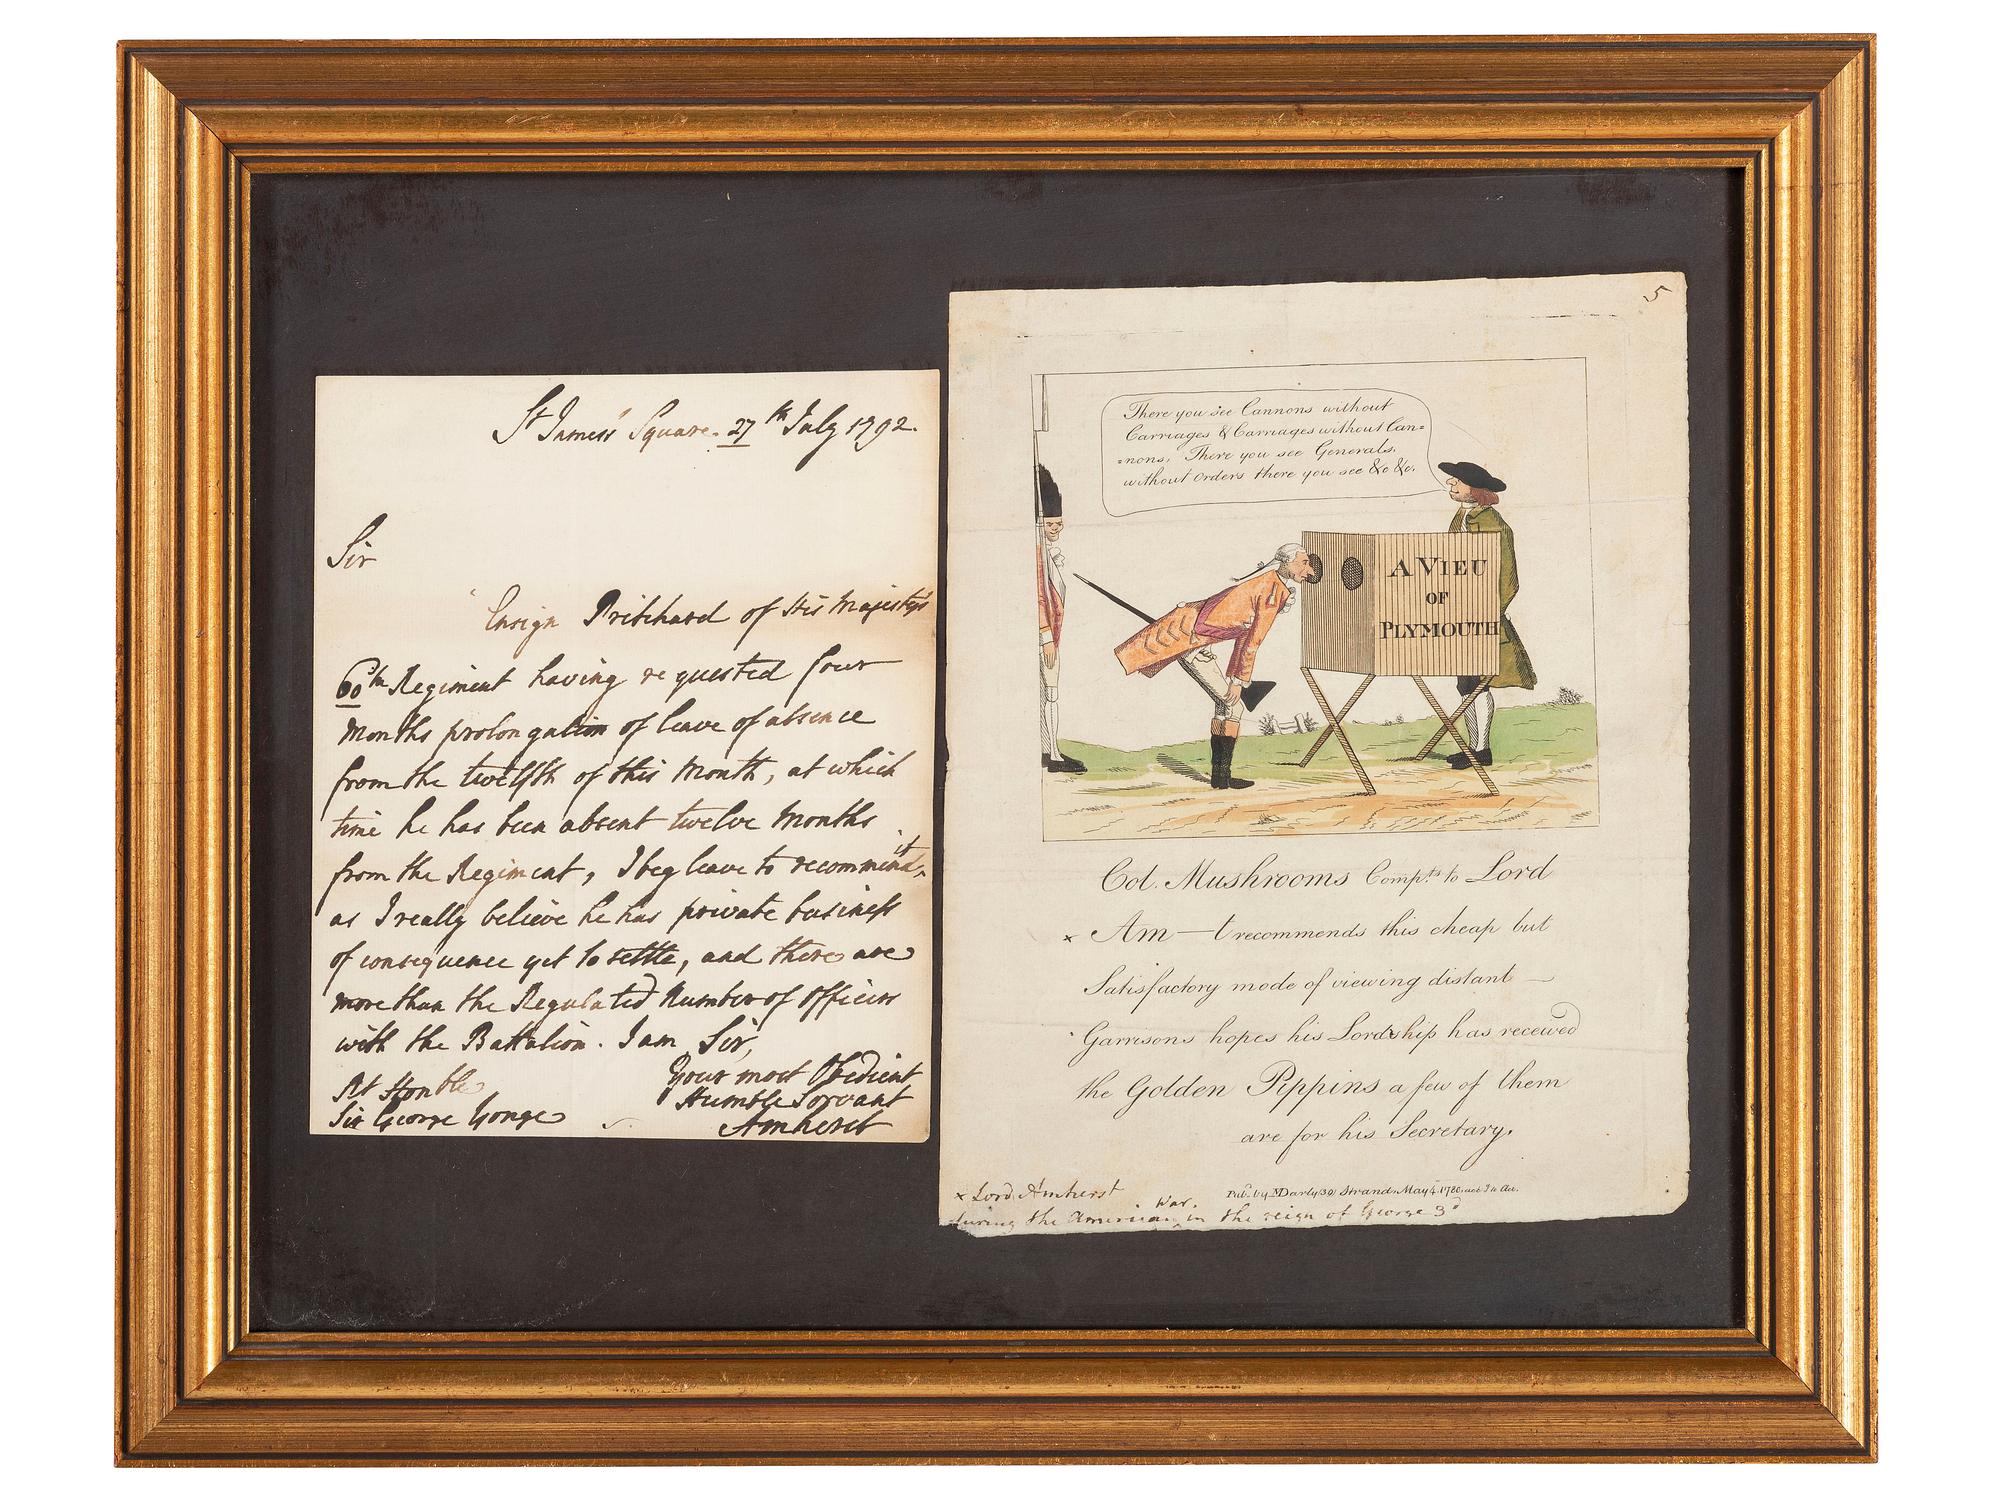 St James's Square. 27th July 1792.
Sir
Ensign Pritchard of His Majesty's
60th Regiment having requested four
Months prolongation of leave of absence
from the twelfth of this Month, at which
time he has been absent twelve Months
from the Regiment, I beg leave to recommend it,
as I really believe he has private business
of consequence yet to settle, and there are
more than the Regulated Number of Officers
with the Battalion. I am Sir,
Your most Obedient
Humble Servant
Amherst
Rt Honble
Sir George Yonge
5
There you see Cannons without
Carriages & Carriages without Can=
=nons, There you see Generals,
without Orders there you see &c &c.
A VIEU
OF
PLYMOUTH
Col. Mushrooms Compts to Lord
x Am—t recommends this cheap but
Satisfactory mode of viewing distant —
Garrisons hopes his Lordship has received
the Golden Pippins a few of them
are for his Secretary.
Pub. by MDarly (39) Strand May 4 1780. act
x Lord Amherst
during the American War. in the reign of George 3d